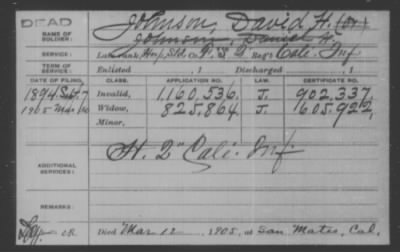 DEAD
NAME OF SOLDIER: Johnson, David H. (or)
Johnson, Daniel H.
SERVICE: Late rank, Hosp. Std. Co. F. & G Reg't Cala. Inf
TERM OF SERVICE: Enlisted , 1 Discharged , 1
DATE OF FILING. CLASS. APPLICATION NO. LAW. CERTIFICATE NO.
1894 Sept. 7 Invalid, 1,160,536. J. 902,337,
1905 Mar Widow, 825,864. J. 605,922,
Minor,
ADDITIONAL SERVICES: H. 2" Cala. Inf.
REMARKS:
Died Mar 12, 1905, at San Mateo, Cal.